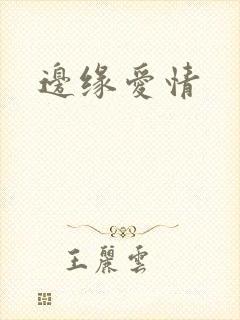 邊缘愛情
王麗雲